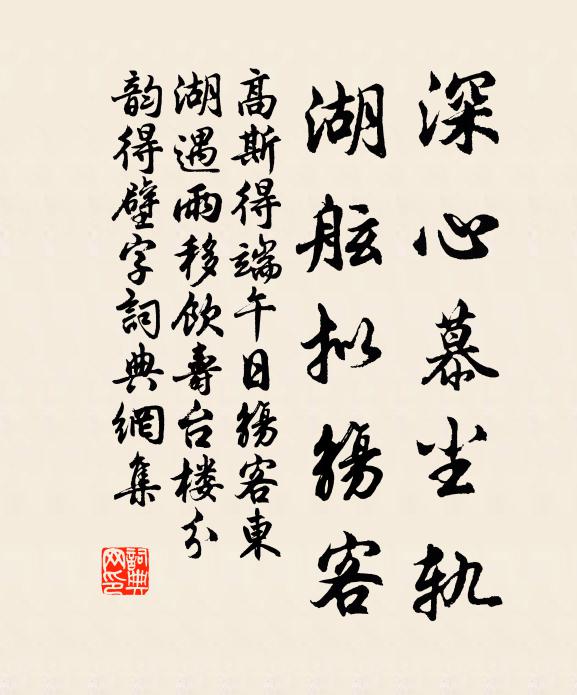 深心慕尘轨
湖舷拟觞客
高斯得端午日觞客東
湖遇雨移飲壽台楼分
韵得壁字詞典網集
詞典
网印